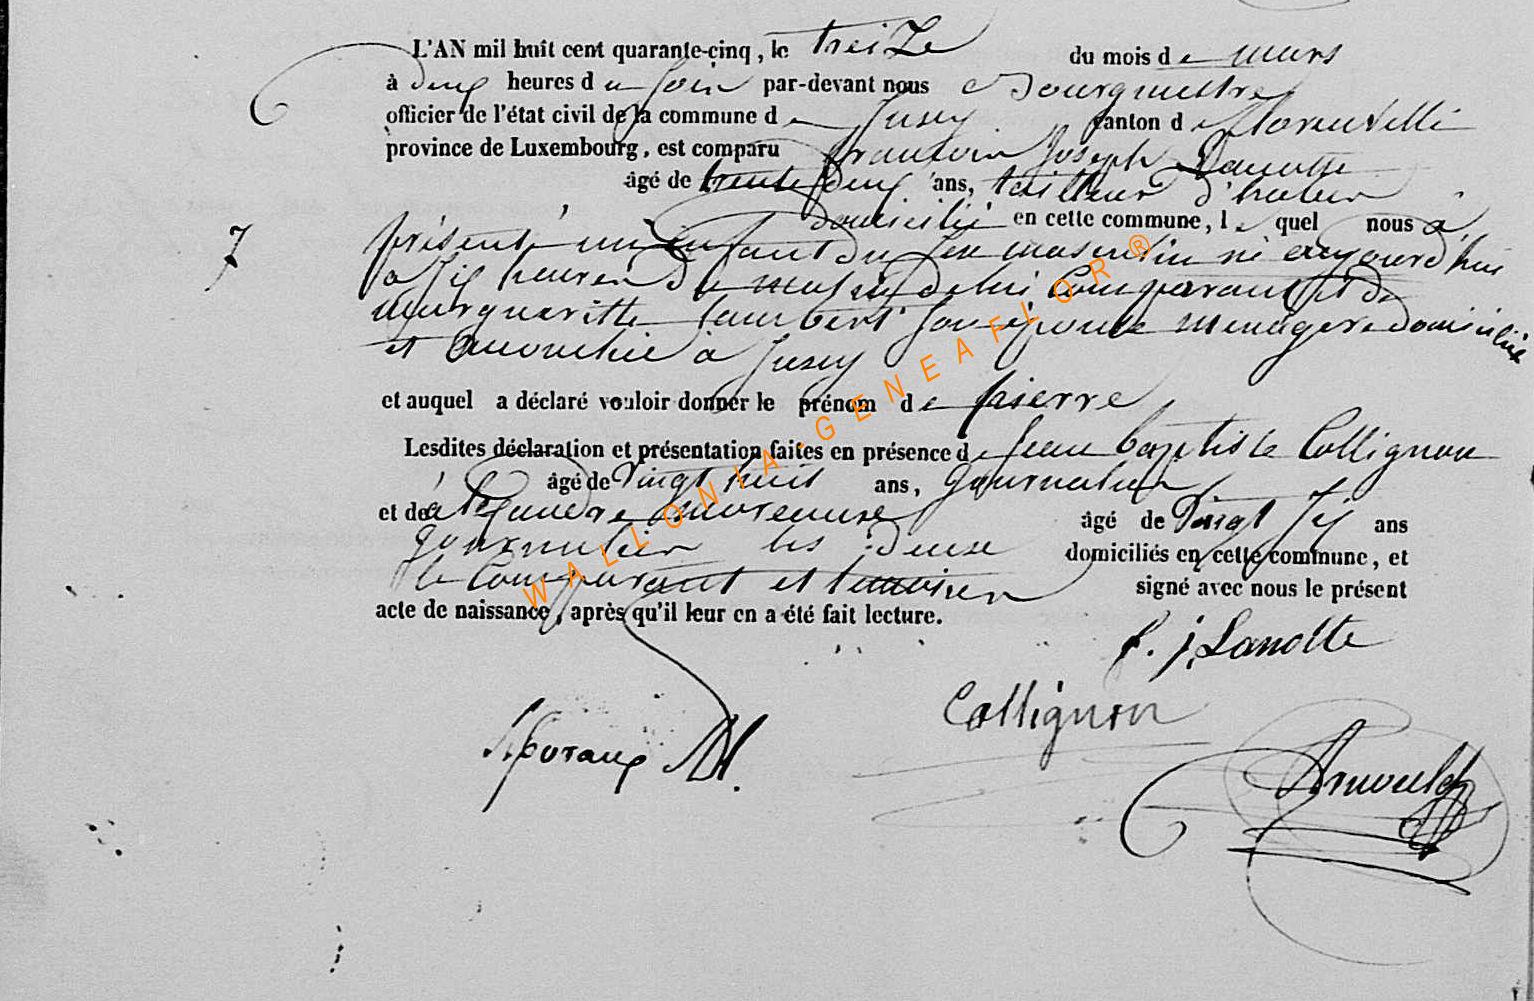 L'AN mil huit cent quarante-cinq, le treize du mois de mars
à deux heures du soir par-devant nous Bourgmettre
officier de l'état civil de la commune de Jusey canton de florenville
province de Luxembourg, est comparu francois Joseph Lanotte
âgé de trente deux ans, tailleur d'habits
domicilié en cette commune, lequel nous a
7
présenté un enfant du sex masculin né aujourd'hui
a six heures du matin de lui Comparant et de
margueritte Lambert son épouse menagere domiciliée
et accouchée à Jusey
et auquel a déclaré vouloir donner le prénom de pierre
Lesdites déclaration et présentation faites en présence de Jean baptiste Collignon
âgé de Vingt huit ans, Journalier
et de alexandre âgé de Vingt six ans
Journalier les deux domiciliés en cette commune, et
le Comparant et temoins signé avec nous le présent
acte de naissance, après qu'il leur en a été fait lecture.
f. j. Lanotte
Collignon
Arnould
WALLONIA-GENEAFLOR®